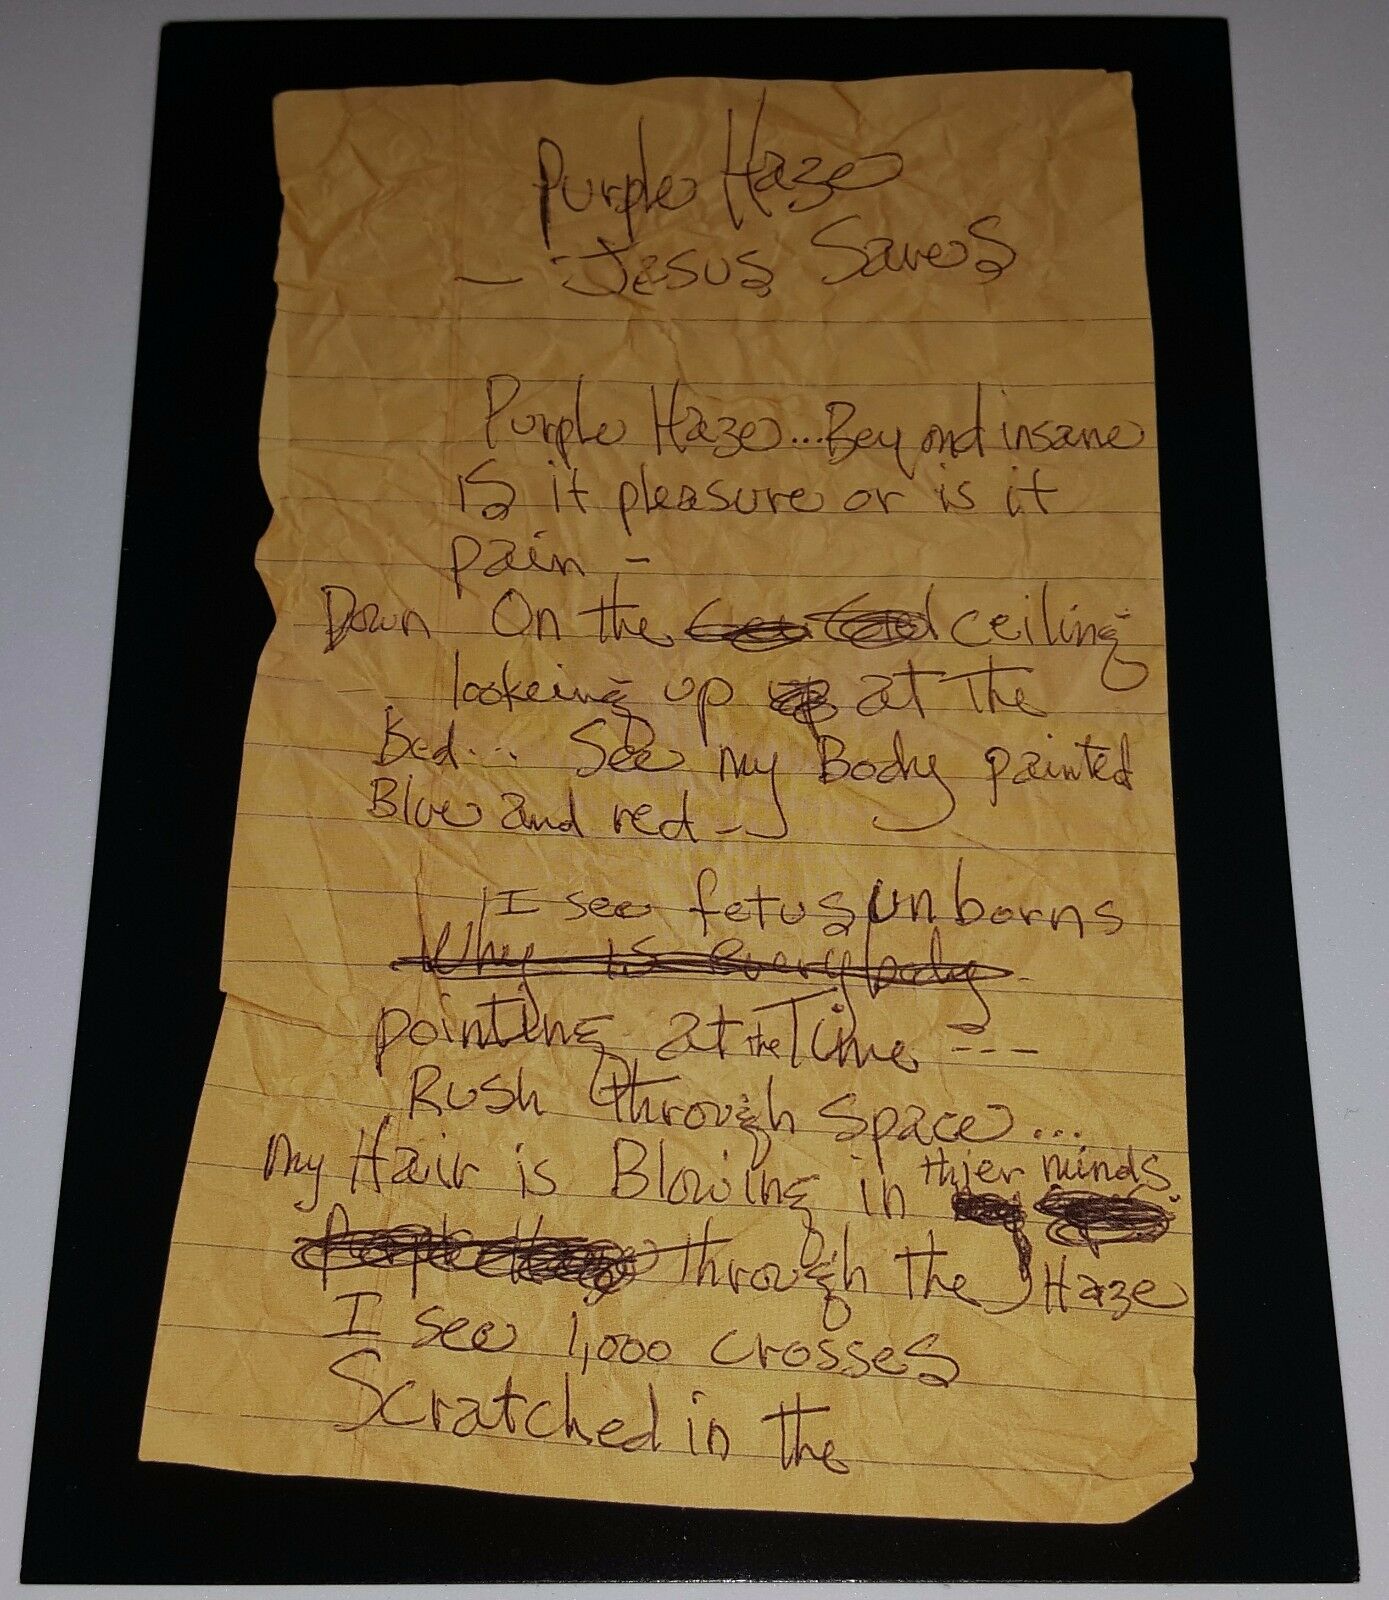 Purple Haze
- Jesus Saves
Purple Haze...Beyond insane
is it pleasure or is it
pain -
Down On the ceiling
lookeing up at the
Bed... See my Body painted
Blue and red -
I see fetus unborns
Why is everybody
pointing at the Time ---
Rush through Space...
my Hair is Blowing in thier minds.
Purple Haze through the Haze
I see 1,000 crosses
Scratched in the